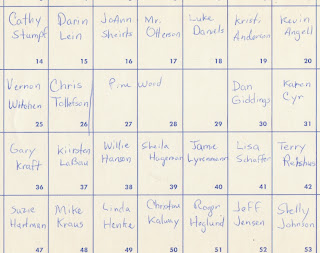 Cathy Darin JoAnn Mr. Luke Kristi Kevin
Stumpf Lein Otterson Daniels Anderson Angell
14 15 16 17 18 19 20
Vernon Chris Pine Word Dan Karen
Tollefson Giddings Cyr
25 26 27 28 29 30 31
Gary Kirsten Willie Sheila Jame Lisa Terry
Kraft LaBau Hanson Hageman Schaffer
36 37 38 39 40 41 42
Suzie Mike Linda Christina Roger Jeff Shelly
Hartman Kraus Henke Kalway Haglund Jensen Johnson
47 48 49 50 51 52 53